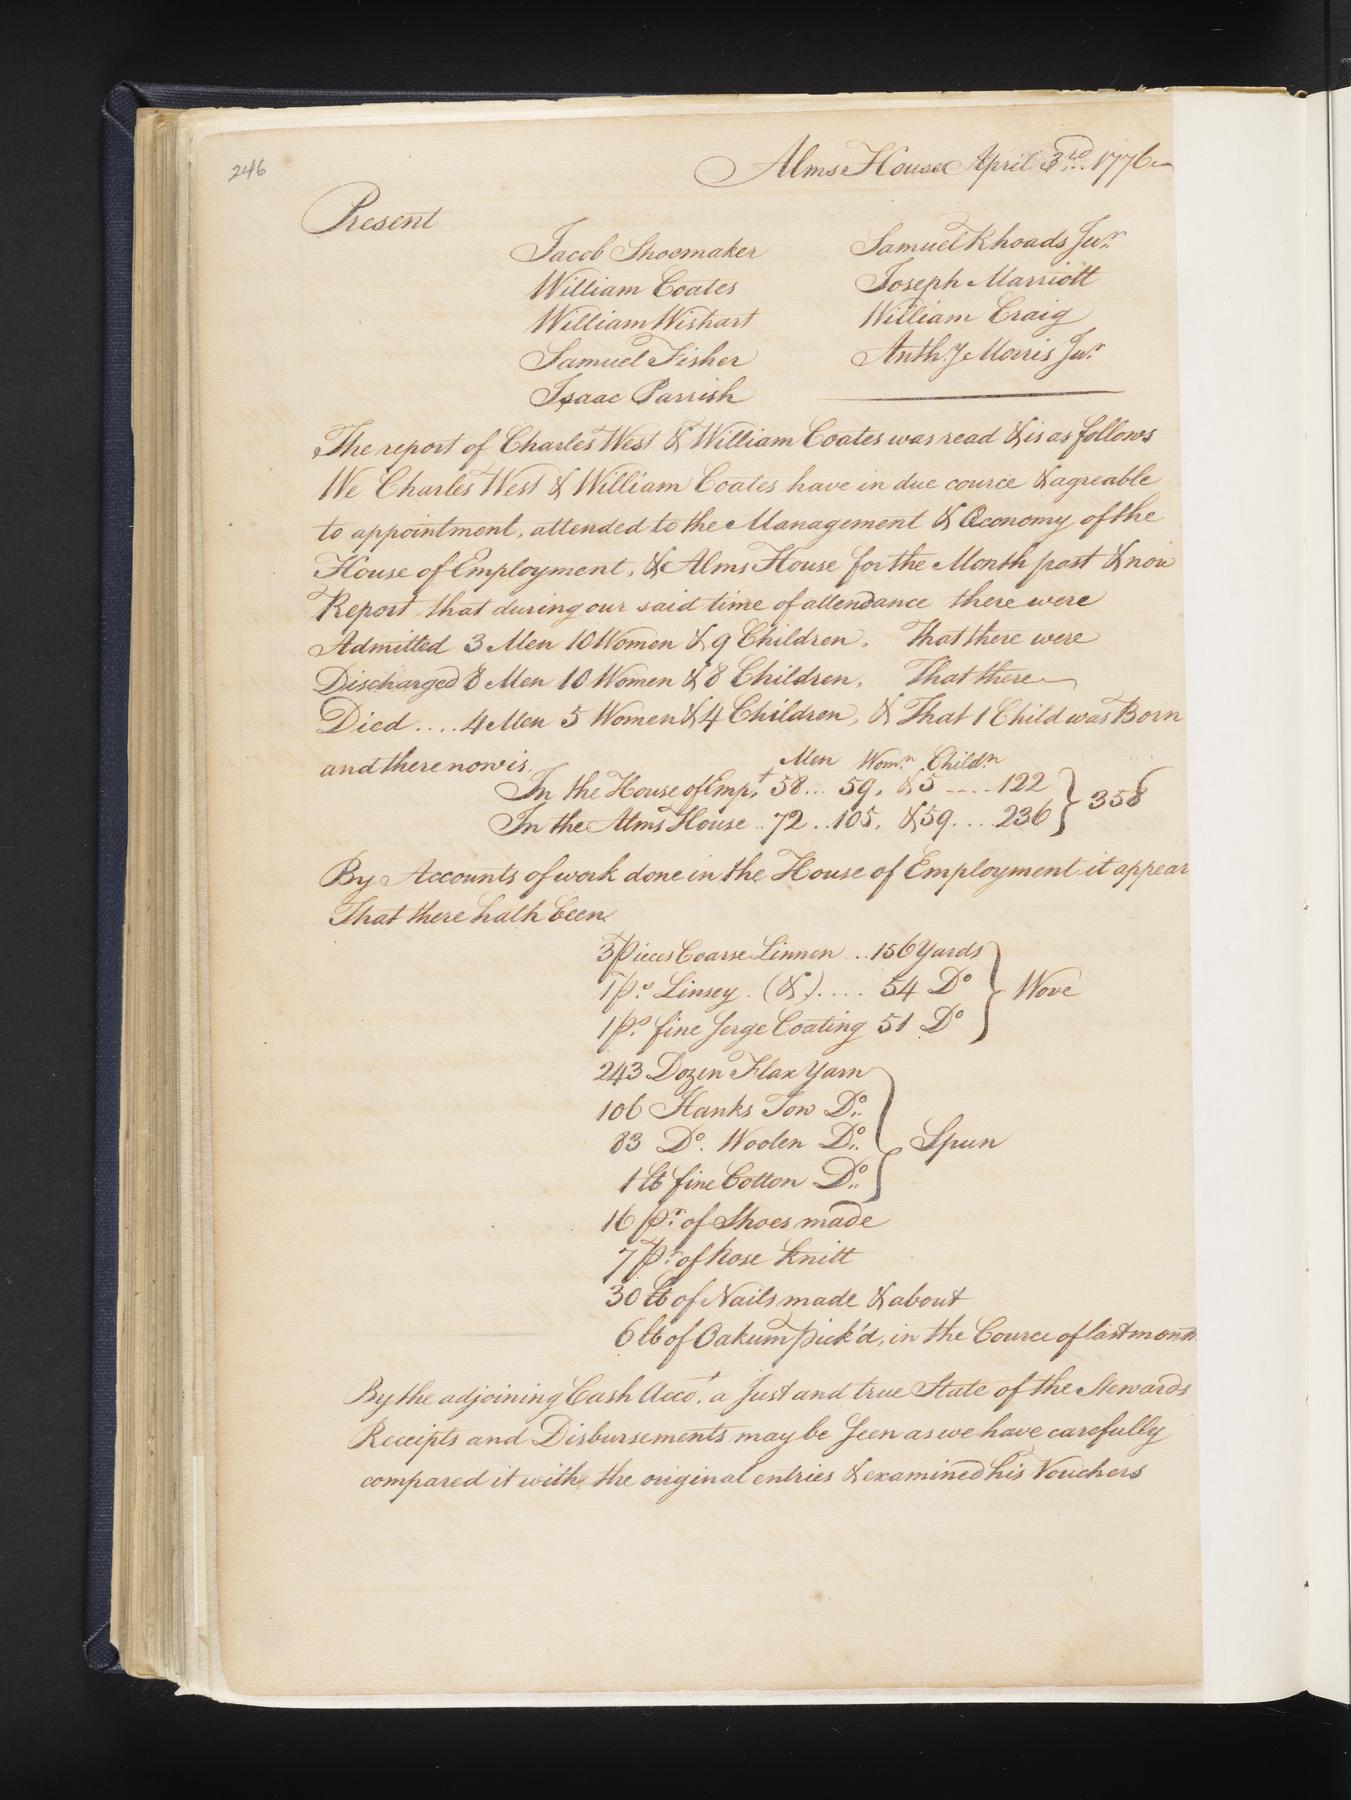 246
Alms House April 3rd. 1776
Present
Jacob Shoemaker
William Coates
William Wishart
Samuel Fisher
Isaac Parrish
Samuel Rhoads Junr.
Joseph Marriott
William Craig
Anthy. Morris Junr.
The report of Charles West & William Coates was read & is as follows
We Charles West & William Coates have in due cource & agreable
to appointment, attended to the Management & Oeconomy of the
House of Employment, & Alms House for the Month past & now
Report that during our said time of attendance there were
Admitted 3 Men 10 Women & 9 Children. That there were
Discharged 8 Men 10 Women & 8 Children, That there
Died .... 4 Men 5 Women & 4 Children, & That 1 Child was Born
and there now is
Men Womn. Childn.
In the House of Empt. 58... 59, & 5 .... 122 } 358
In the Alms House .. 72 .. 105, & 59 .... 236
By Accounts of work done in the House of Employment it appear
That there hath been
3 pieces Coarse Linnen .. 156 Yards
1 ps. Linsey . (&) .... 54 Do } Wove
1 ps. fine Serge Coating 51 Do
243 Dozen Flax Yarn
106 Hanks Tow Do.
83 Do. Woolen Do. } Spun
1 lb fine Cotton Do.
16 pr. of Shoes made
7 pr. of hose knitt
30 lb of Nails made & about
6 lb of Oakum pick'd, in the Cource of last month
By the adjoining Cash Accot. a Just and true State of the Stewards
Receipts and Disbursements may be Seen as we have carefully
compared it with the original entries & examined his Vouchers